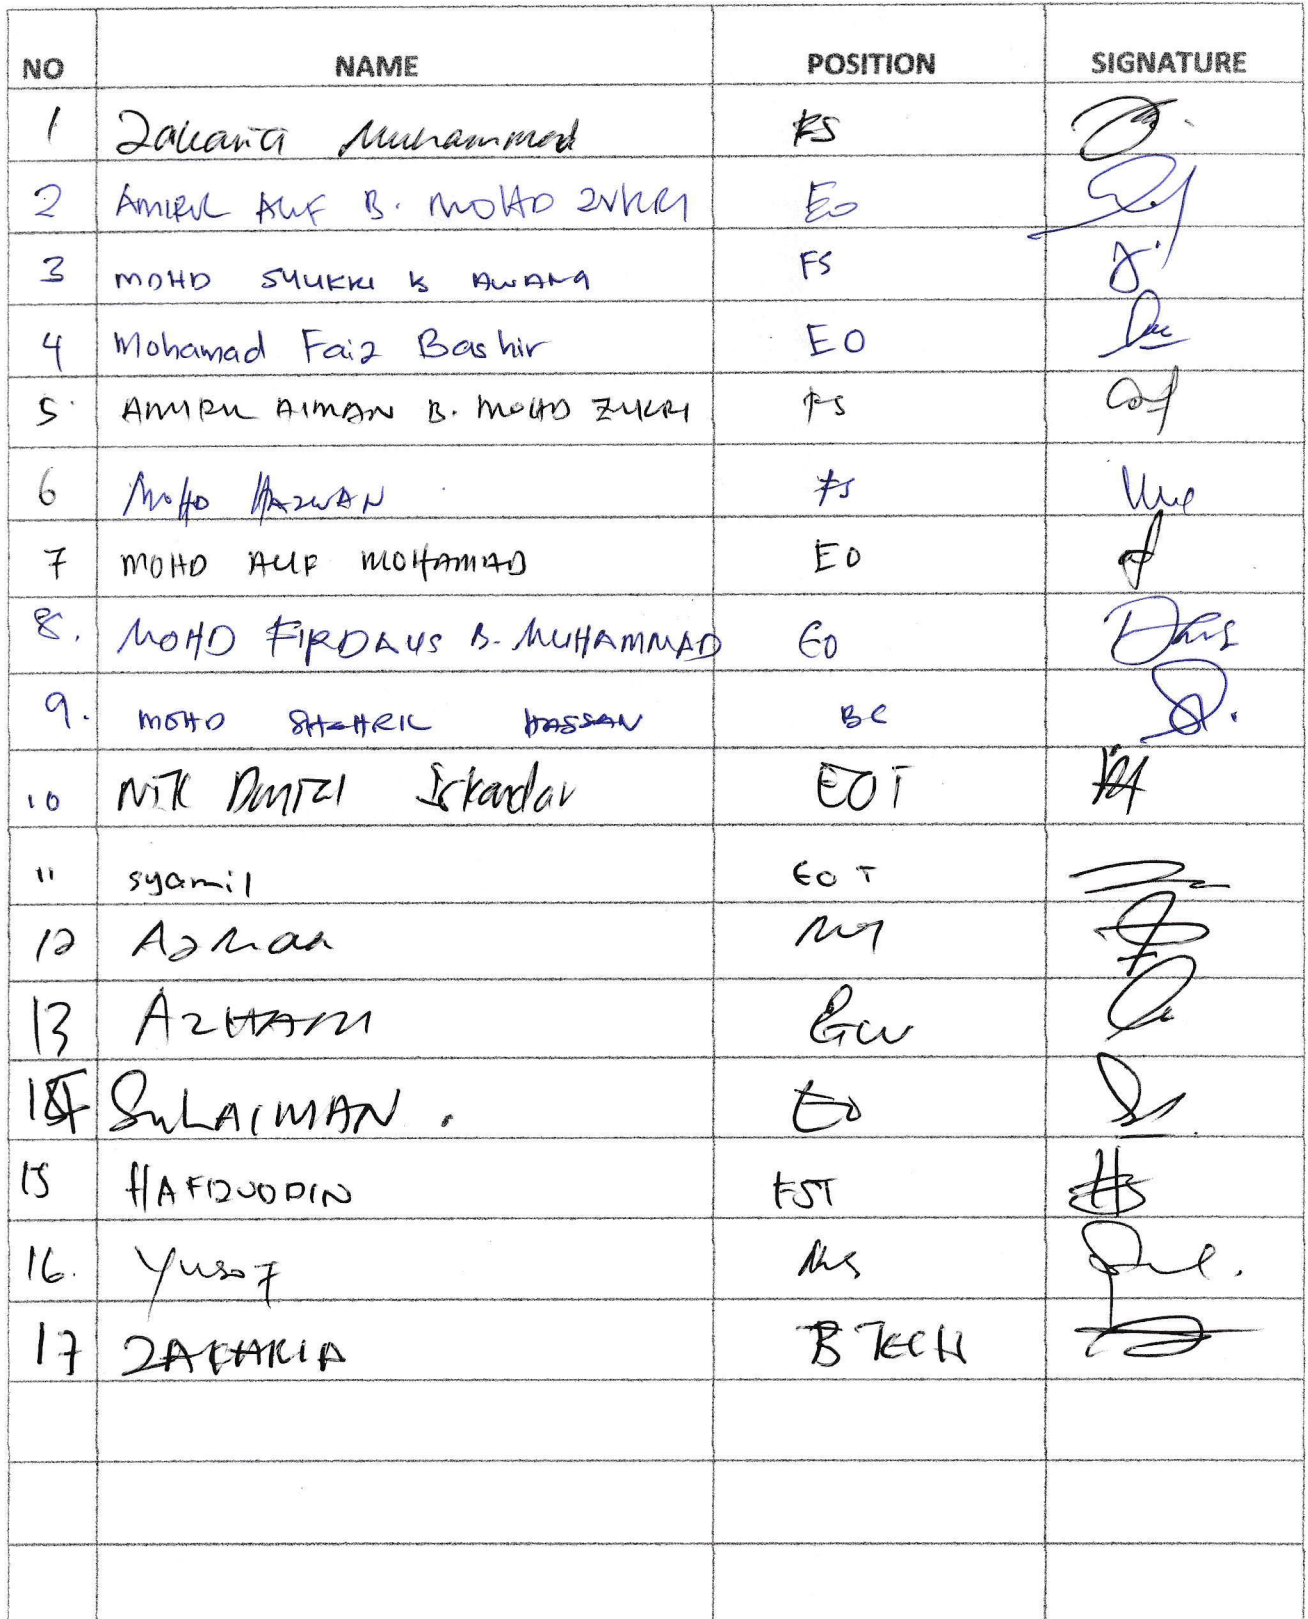 NO NAME POSITION SIGNATURE
1 Zakaria Muhammad FS
2 AMIRUL ALIF B. MOHD ZUKRI EO
3 MOHD SYUKRI B AWANG FS
4 Mohamad Faiz Bashir EO
5 AMIRUL AIMAN B. MOHD ZUKRI FS
6 MOHD HAZWAN FS
7 MOHD ALIF MOHAMAD EO
8. MOHD FIRDAUS B. MUHAMMAD EO
9. MOHD SHAHRIL HASSAN BC
10 Nik Daniel Iskandar EOT
11 syamil EOT
12 Azman
13 AZHARI
14 SULAIMAN. EO
15 HAFIZUDDIN FST
16. Yusof
17 ZAKARIA B TECH